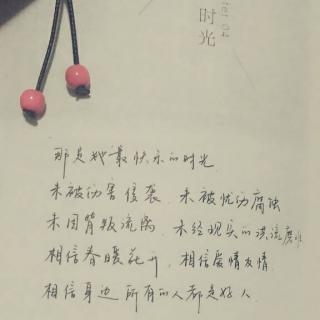 ter 04
时光
那是她最快乐的时光
未被伤害侵袭、未被忧伤腐蚀
未因背叛流离、未经现实的洪流磨
相信春暖花开，相信爱情友情
相信身边所有的人都是好人